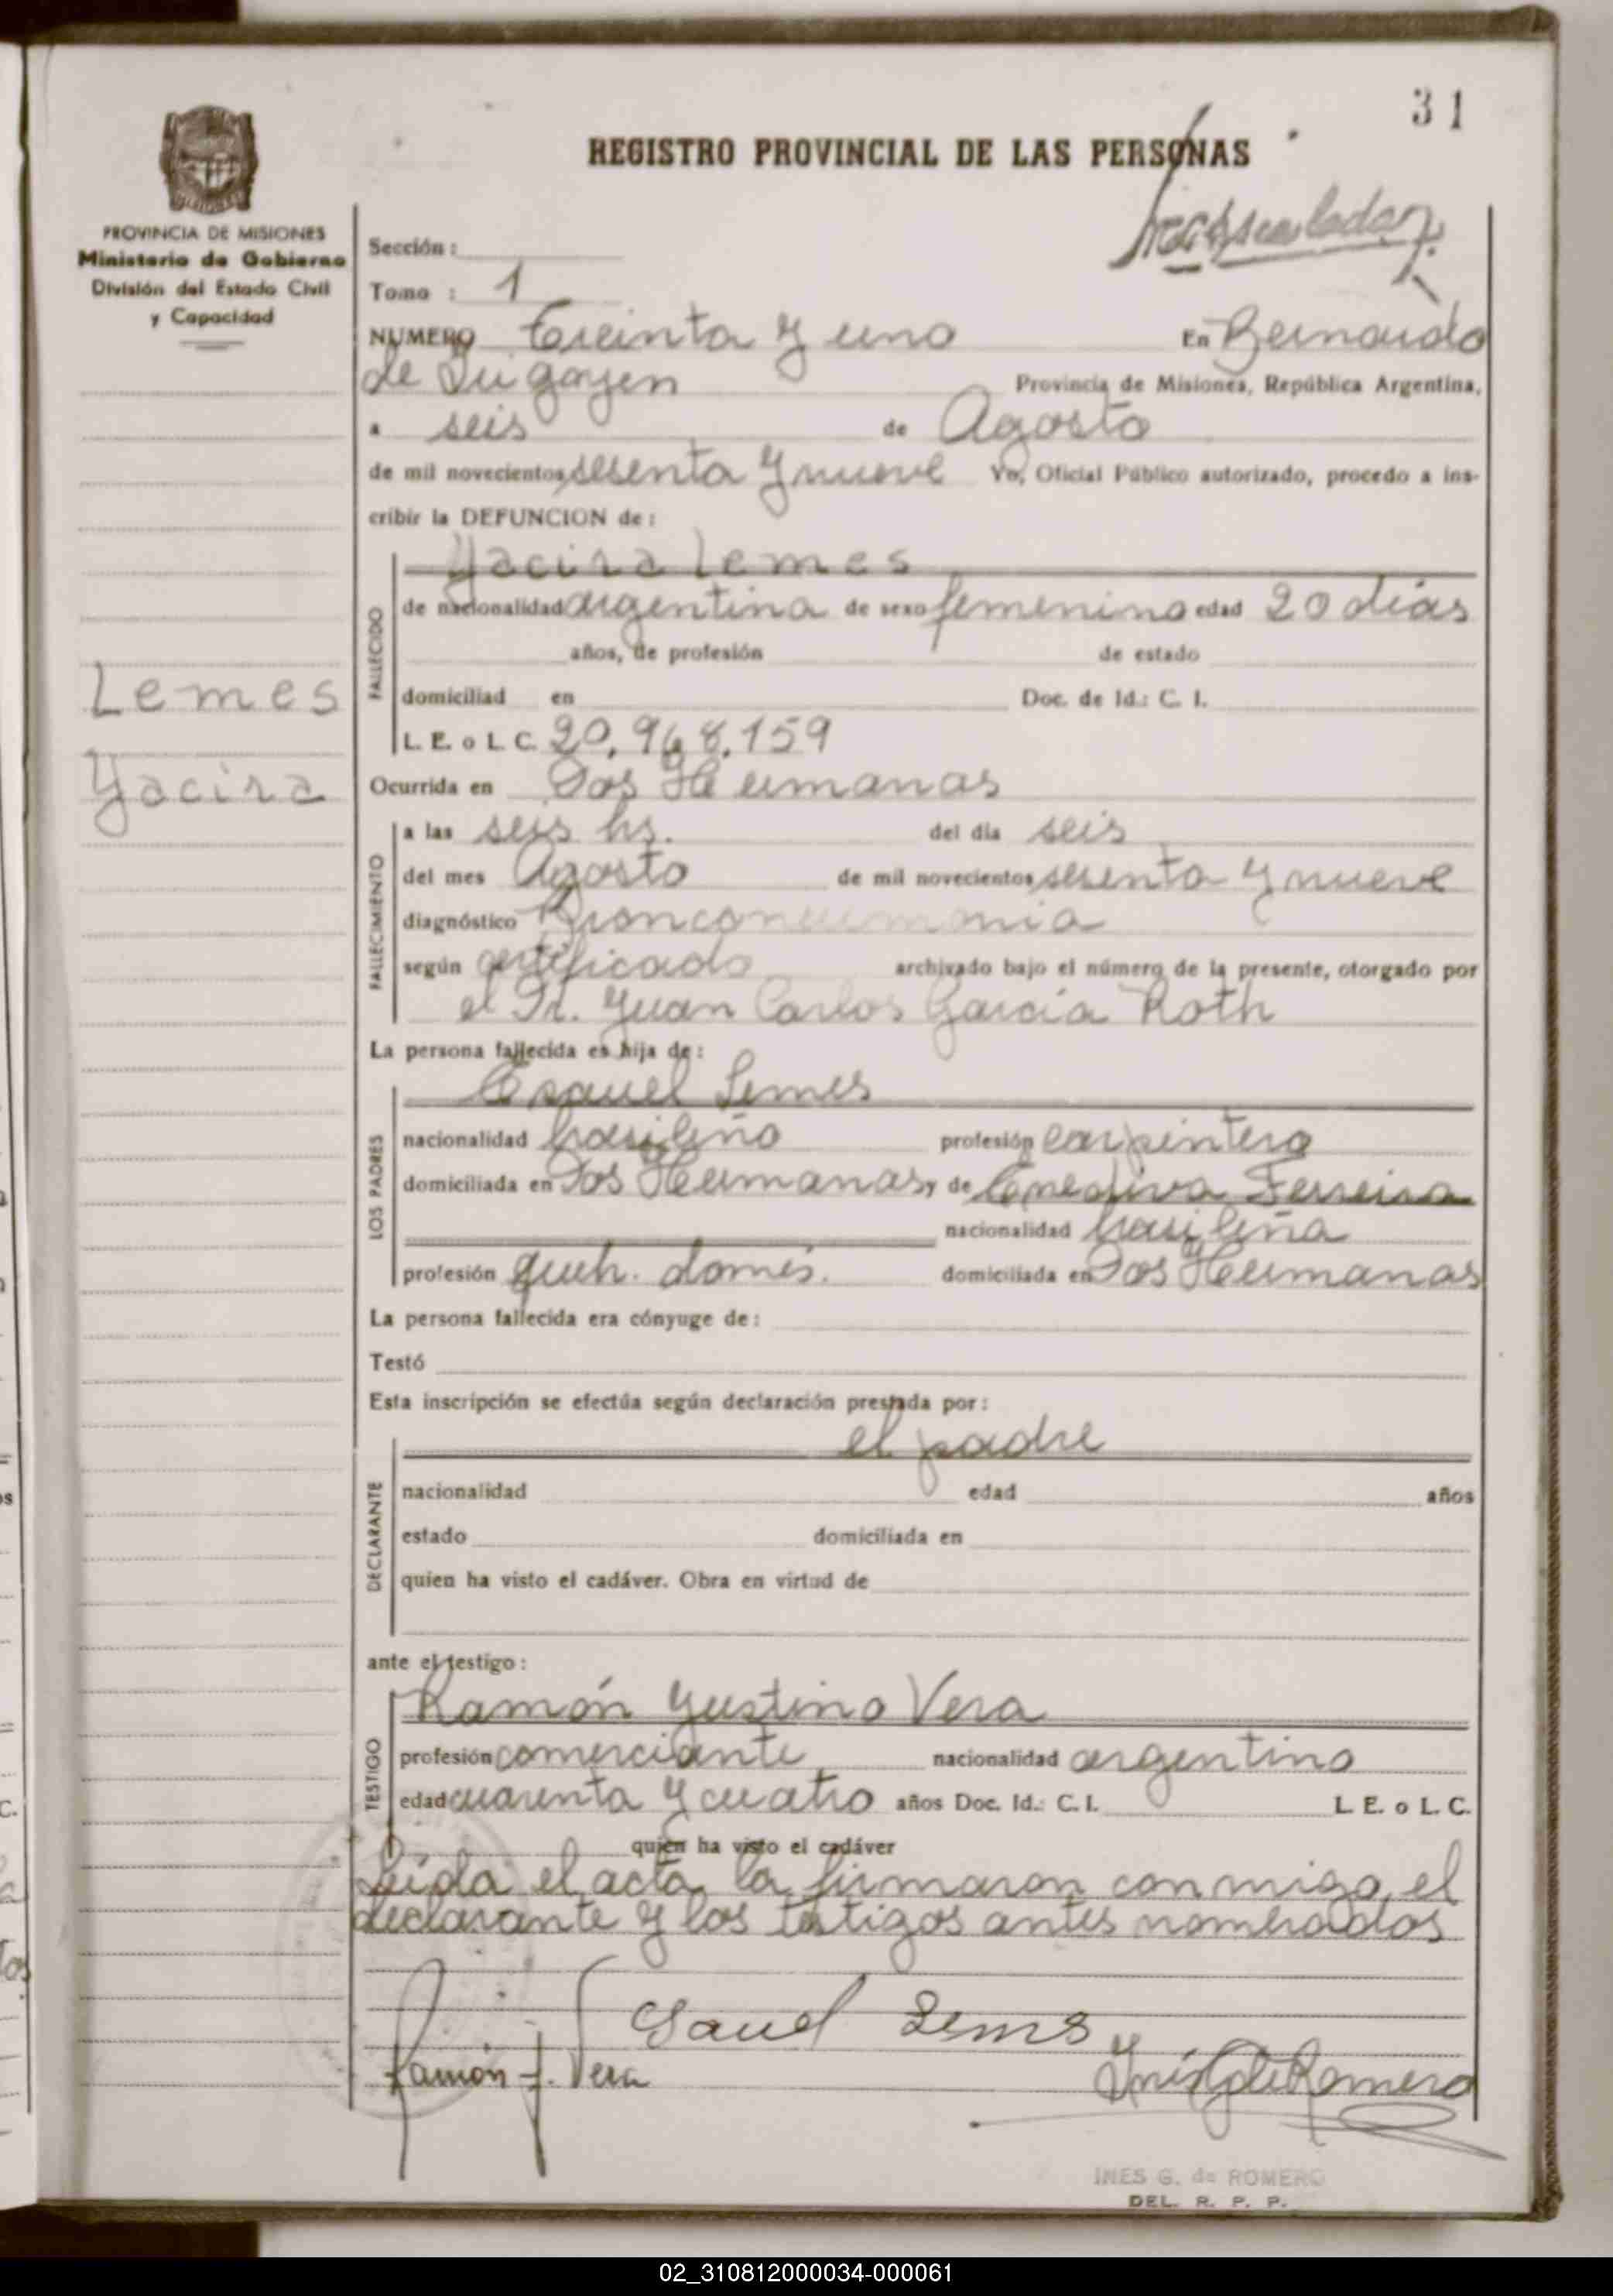 31
REGISTRO PROVINCIAL DE LAS PERSONAS
PROVINCIA DE MISIONES
Ministerio de Gobierno
División del Estado Civil
y Capacidad
Sección :
Tomo : 1
NUMERO Treinta y uno En Bernardo
de Irigoyen Provincia de Misiones, República Argentina,
a seis de Agosto
de mil novecientos sesenta y nueve Yo, Oficial Público autorizado, procedo a ins-
cribir la DEFUNCION de :
Yacira Lemes
FALLECIDO
de nacionalidad argentina de sexo femenino edad 20 días
años, de profesión de estado
Lemes
domiciliad en Doc. de Id.: C. I.
L. E. o L. C. 20.968.159
Yacira
Ocurrida en Dos Hermanas
FALLECIMIENTO
a las seis hs. del día seis
del mes Agosto de mil novecientos sesenta y nueve
diagnóstico Bronconeumonia
según certificado archivado bajo el número de la presente, otorgado por
el Dr. Juan Carlos García Roth
La persona fallecida es hija de :
LOS PADRES
Esauel Lemes
nacionalidad brasileño profesión carpintero
domiciliada en Dos Hermanas y de Enediva Ferreira
nacionalidad brasileña
profesión queh. domés. domiciliada en Dos Hermanas
La persona fallecida era cónyuge de :
Testó
Esta inscripción se efectúa según declaración prestada por :
el padre
DECLARANTE
nacionalidad edad años
estado domiciliada en
quien ha visto el cadáver. Obra en virtud de
ante el testigo :
TESTIGO
Ramón Justino Vera
profesión comerciante nacionalidad argentino
edad cuarenta y cuatro años Doc. Id.: C. I. L. E. o L. C.
quien ha visto el cadáver
Leída el acta la firmaron conmigo, el
declarante y los testigos antes nombrados
Ramón J. Vera
Inés G de Romero
INES G. de ROMERO
DEL. R. P. P.
02_310812000034-000061